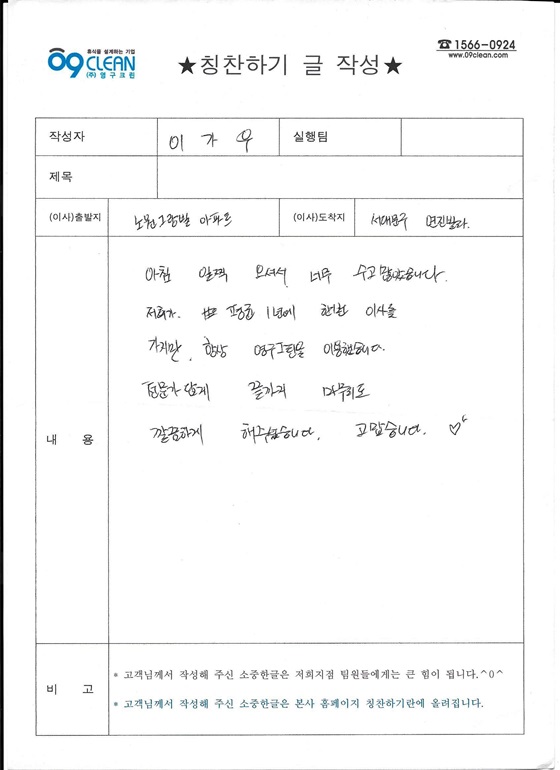 휴식을 설계하는 기업
09 CLEAN
(주)영구크린
★칭찬하기 글 작성★
☎1566-0924
www.09clean.com
작성자 이가우 실행팀
제목
(이사)출발지 노원그랑빌 아파트 (이사)도착지 서대문구 연진빌라.
내 용
아침 일찍 오셔서 너무 수고 많았습니다.
저희가. 평균 1년에 한번 이사을
가지만, 항상 영구크린을 이용했습니다.
전문가 답게 끝까지 마무리도
깔끔하게 해주셨습니다. 고맙습니다. ♡
비 고
* 고객님께서 작성해 주신 소중한글은 저희지점 팀원들에게는 큰 힘이 됩니다.^0^
* 고객님께서 작성해 주신 소중한글은 본사 홈페이지 칭찬하기란에 올려집니다.